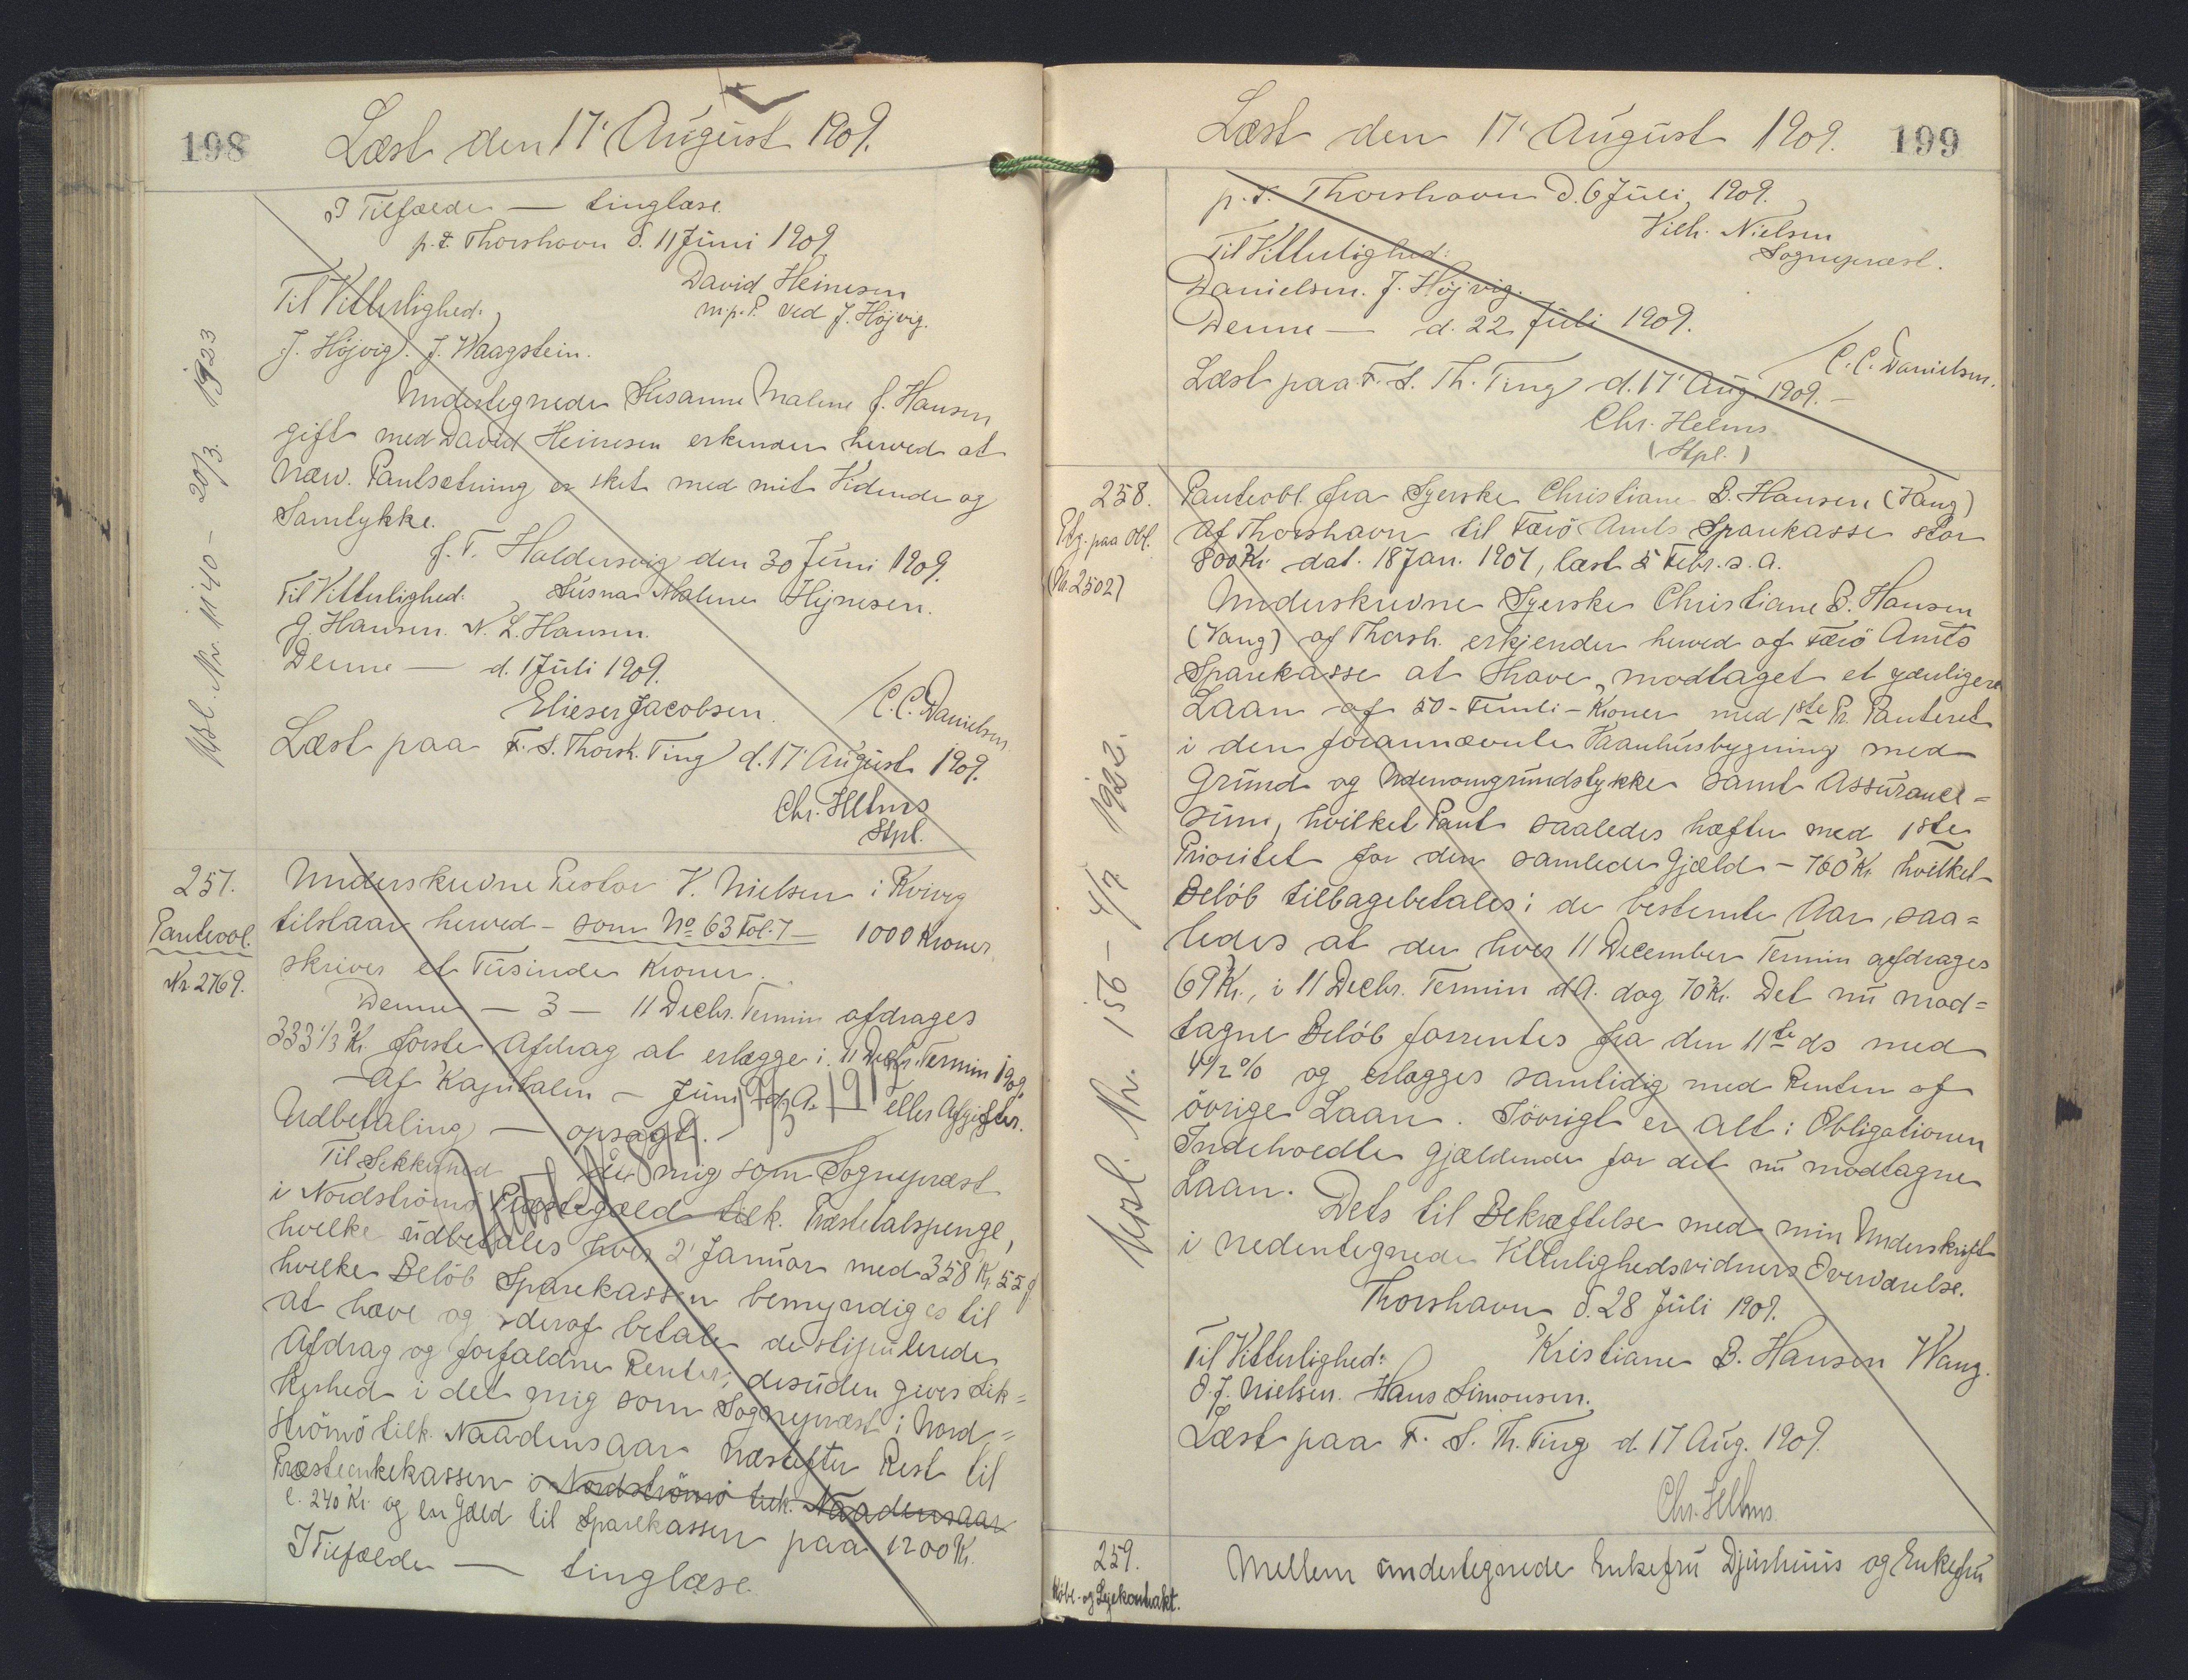 198
Læst den 17' August 1909.
I Tilfælde — tinglæse.
p.t. Thorshavn d. 11 Juni 1909
David Heinesen
m.p.P. ved J. Højvig.
Til Vitterlighed:
J. Højvig. J. Waagstein.
Undertegnede Susanne Malene f. Hansen
gift med David Heinesen erkender herved at
nærv. Pantsætning er sket med mit Vidende og
Samtykke.
p.T. Haldersvig den 30 Juni 1909.
Til Vitterlighed: Susna Malene Hejnesen.
J. Hansen. N. L. Hansen.
Denne — d. 1 Juli 1909.
Elieser Jacobsen. / C.C. Danielsen.
Læst paa F. S. Thorsh. Ting d. 17' August 1909.
Chr. Helms
Stpl.
Udsl. Nr. 1140 - 20/3. 1923
257.
Panteobl.
Nr. 2769.
Underskrevne Pastor V. Nielsen i Kvivig
tilstaar herved - som No 63 Fol. 7 — 1000 Kroner,
skriver et Tusinde Kroner.
Denne — 3 — 11 Decbr. Termin afdrages
333 1/3 Kr. første Afdrag at erlægge i 11 Decbr. Termin 1909.
Af Kapitalen — Juni d. A. — eller Afgifter.
Udbetaling — opsagt. —
Til Sikkerhed — den mig som Sognepræst
i Nordstrømø Præstegæld tilk. Præstetalspenge,
hvilke udbetales hver 2' Januar med 358 Kr. 55 Ø
hvilke Beløb Sparekassen bemyndiges til
at hæve og deraf betale de stipulerede
Afdrag og forfaldne Renter; desuden gives Sik=
kerhed i det mig som Sognepræst i Nord=
strømø tilk. Naadensaar næstefter Rest til
Præsteenkekassen i Nordstrømø tilk. Naadensaar
c. 240 Kr. og en Gæld til Sparekassen paa 1200 Kr.
I Tilfælde — tinglæse.
199
Læst den 17' August 1909.
p.t. Thorshavn d. 6 Juli 1909.
Vilh. Nielsen
Sognepræst.
Til Vitterlighed:
Danielsen. J. Højvig.
Denne — d. 22 Juli 1909.
/ C.C. Danielsen.
Læst paa F. S. Th. Ting d. 17' Aug. 1909. —
Chr. Helms
(Stpl.)
258.
Ptg. paa Obl.
(Nr. 2502)
Panteobl. fra Syerske Christiane B. Hansen (Vang)
af Thorshavn til Færø Amts Sparekasse stor
800 Kr. dat. 18 Jan. 1907, læst 5 Febr. s. A.
Underskrevne Syerske Christiane B. Hansen
(Vang) af Thorsh. erkjender herved af Færø Amts
Sparekasse at have modtaget et yderligere
Laan af 50 - Femti - Kroner med 1ste Pr. Panteret
i den forannævnte Vaanhusbygning med
Grund og Udenomgrundstykke samt Assurance=
sum, hvilket Pant saaledes hæfter med 1ste
Prioritet for den samlede Gjæld - 760 Kr. hvilket
Beløb tilbagebetales i de bestemte Aar, saa=
ledes at der hver 11 December Termin afdrages
69 Kr., i 11 Decbr. Termin d.A. dog 70 Kr. Det nu mod=
tagne Beløb forrentes fra den 11te ds med
4 1/2 % og erlægges samtidig med Renten af
øvrige Laan. Iøvrigt er alt i Obligationen
Indeholdte gjældende for det nu modtagne
Laan.
Dets til Bekræftelse med min Underskrift
i nedentegnede Vitterlighedsvidners Overværelse.
Thorshavn d. 28 Juli 1909.
Til Vitterlighed: Kristiane B. Hansen Wang.
O. J. Nielsen. Hans Simonsen.
Læst paa F. S. Th. Ting d. 17 Aug. 1909.
Chr. Helms.
Udsl. Nr. 156 - 4/7 1922.
259.
Købe- og Lejekontrakt.
Mellem undertegnede Enkefru Djurhuus og Enkefru